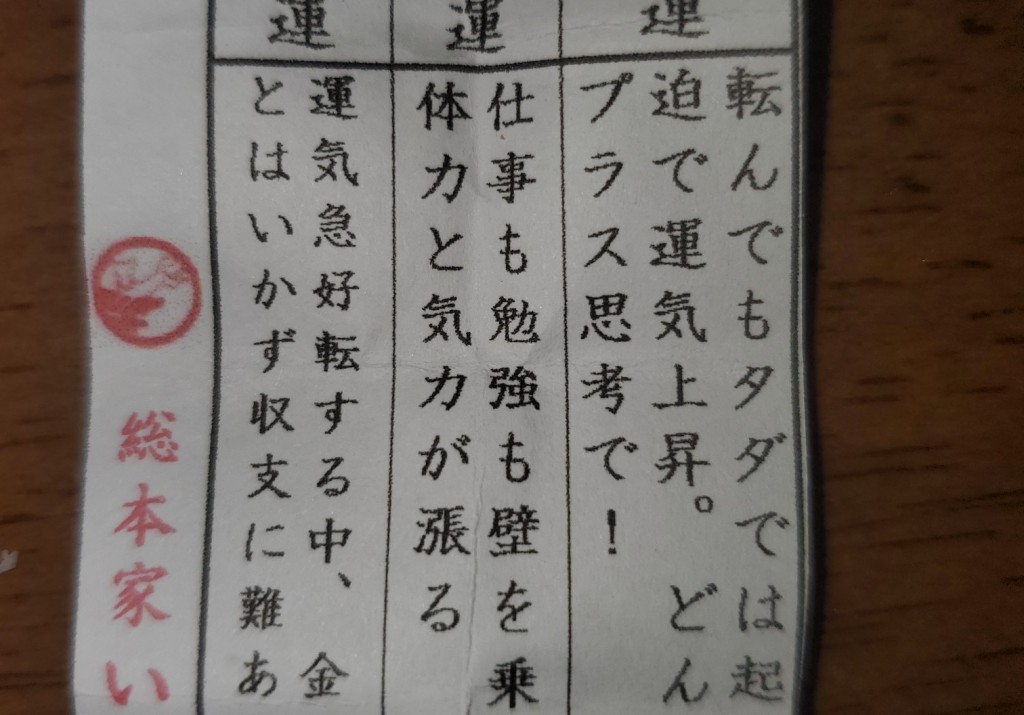 運
転んでもタダでは起
迫で運気上昇。 どん
プラス思考で!
運
仕事も勉強も壁を乗
体力と気力が漲る
運
運気急好転する中、 金
とはいかず収支に難あ
総本家い